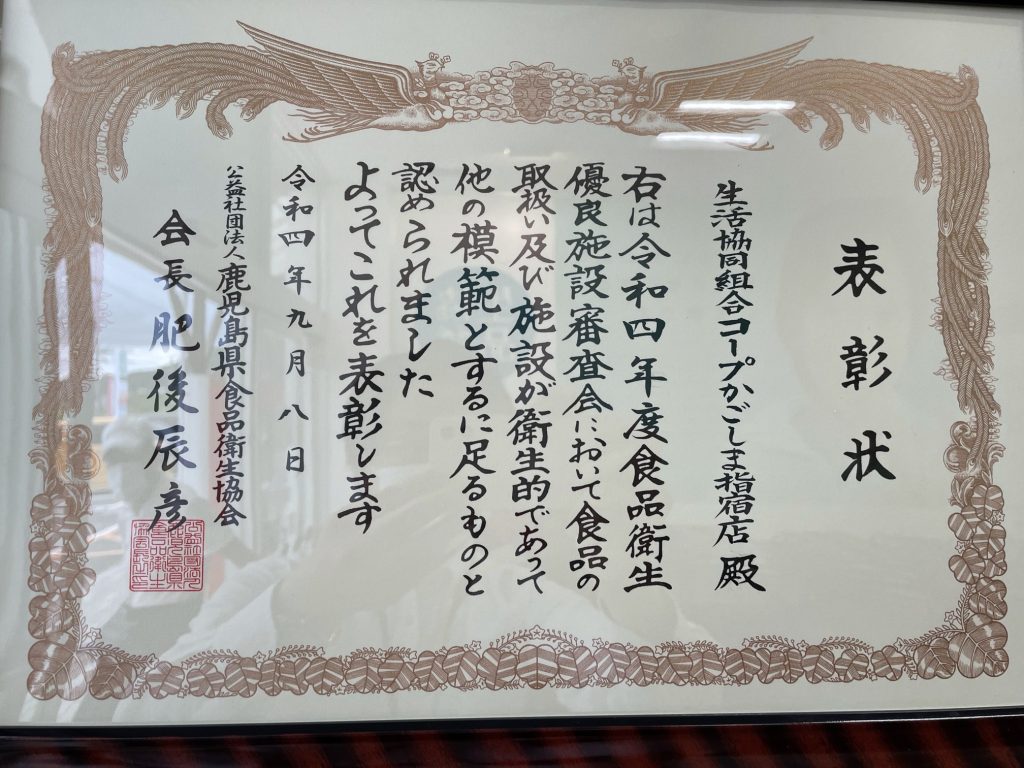 表彰状
生活協同組合コープかごしま指宿店 殿
右は令和四年度食品衛生
優良施設審査会において食品の
取扱い及び施設が衛生的であって
他の模範とするに足るものと
認められました
よってこれを表彰します
令和四年九月八日
公益社団法人鹿児島県食品衛生協会
会長 肥後辰彦